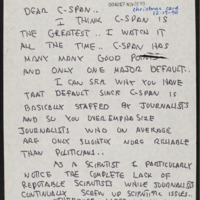 christmas card
12-19-90
DEAR C-SPAN..
I THINK C-SPAN IS
THE GREATEST.. I WATCH IT
ALL THE TIME.. C-SPAN HAS
MANY MANY GOOD
AND ONLY ONE MAJOR DEFAULT..
I CAN SEE WHY YOU HAVE
THAT DEFAULT SINCE C-SPAN IS
BASICALLY STAFFED BY JOURNALISTS
AND SO YOU OVER EMPHASIZE
JOURNALISTS WHO ON AVERAGE
ARE ONLY SLIGHTLY MORE RELIABLE
THAN POLITICIANS..
AS A SCIENTIST I PARTICULARLY
NOTICE THE COMPLETE LACK OF
REPUTABLE SCIENTISTS WHILE JOURNALISTS
CONTINUALLY SCREW UP SCIENTIFIC ISSUES..